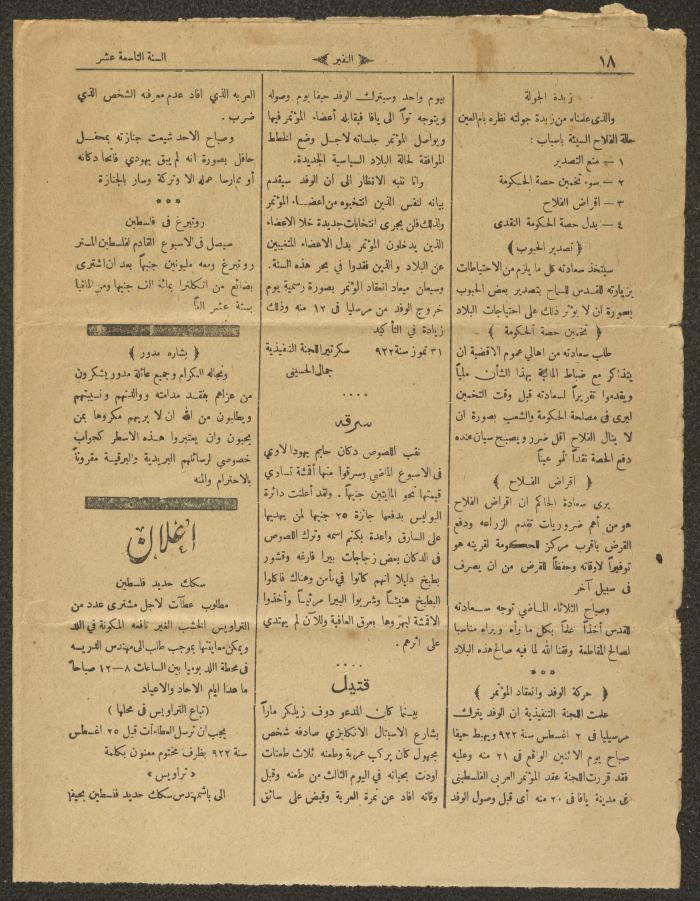 ١٨
﴿ النفير ﴾
السنة التاسعة عشر
زبدة الجولة
والذى علمناه من زبدة جولته نظره بام العين
حالة الفلاح السيئة باسباب :
١ — منع التصدير
٢ — سوء تخمين حصة الحكومة
٣ — اقراض الفلاح
٤ — بدل حصة الحكومة النقدى
﴿ تصدير الحبوب ﴾
سيتخذ سعادته كل ما يلزم من الاحتياطات
بزيارته للقدس للسماح بتصدير بعض الحبوب
بصورة ان لا يؤثر ذلك على احتياجات البلاد
﴿ تخمين حصة الحكومة ﴾
طلب سعادته من اهالي عموم الاقضية ان
يتذاكر مع ضباط المالية بهذا الشأن ملياً
ويقدموا تقريراً لسعادته قبل وقت التخمين
ليرى فى مصلحة الحكومة والشعب بصورة ان
لا ينال الفلاح اقل ضرر ويصبح سيان عنده
دفع الحصة نقداً أو عيناً
﴿ اقراض الفلاح ﴾
يرى سعادة الحاكم ان اقراض الفلاح
هو من أهم ضروريات تقدم الزراعه ودفع
القرض باقرب مركز للحكومة لقريته هو
توفيراً لاوقاته وحفظاً للقرض من ان يصرف
فى سبيل آخر
وصباح الثلاثاء الماضي توجه سعادته
للقدس أخذاً علماً بكل ما رأه ويراه مناسبا
لصالح المقاطعة وفقنا الله لما فيه صالح هذه البلاد
***
﴿ حركة الوفد وانعقاد المؤتمر ﴾
علمت اللجنة التنفيذية ان الوفد يترك
مرسيليا فى ٢ اغسطس سنة ٩٢٢ ويهبط حيفا
صباح يوم الاثنين الواقع فى ٢١ منه وعليه
فقد قررت اللجنة عقد المؤتمر العربي الفلسطيني
فى مدينة يافا فى ٢٠ منه أى قبل وصول الوفد
بيوم واحد وسيترك الوفد حيفا يوم وصوله
ويتوجه تواً الى يافا فيقابله أعضاء المؤتمر فيها
ويواصل المؤتمر جلساته لاجل وضع الخطط
الموافقة لحالة البلاد السياسية الجديدة.
وانا ننبه الافظار الى أن الوفد سيقدم
بيانه لنفس الذين انتخبوه من اعضاء المؤتمر
ولذلك فلن يجرى انتخابات جديدة خلا الاعضاء
الذين يدخلون المؤتمر بدل الاعضاء المتغيبين
عن البلاد والذين فقدوا في بحر هذه السنة.
وسيعلن ميعاد انعقاد المؤتمر بصورة رسمية يوم
خروج الوفد من مرسليا فى ١٢ منه وذلك
زيادة في التأكيد
٣١ تموز سنة ٩٢٢ سكرتير اللجنة التنفيذية
جمال الحسيني
....
سرقه
نقب اللصوص دكان حاييم يهودا لاوي
فى الاسبوع الماضي وسرقوا منها أقمشة تساوي
قيمتها نحو المايتين جنيهاً. ولقد أعلنت دائرة
البوليس بدفعها جائزة ٢٥ جنيها لمن يهديها
على السارق واعدة بكتم اسمه وترك اللصوص
فى الدكان بعض زجاجات بيرا فارغه وقشور
بطيخ دليلا انهم كانوا في مأمن وهناك فاكلوا
البطيخ هنيئاً وشربوا البيرا مريئاً وأخذوا
الاقمشة ليهزوها بعرق العافية وللآن لم يهتدي
على اثرهم .
....
قتيل
بينما كان المدعو دوف زيلكر ماراً
بشارع الاسبتال الانكليزي صادفه شخص
مجهول كان يركب عربة وطعنه ثلاث طعنات
اودت بحياته في اليوم الثالث من طعنه وقبل
وفاته افاد عن نمرة العربة وقبض على سائق
العربه الذي افاد عدم معرفته الشخص الذي
ضرب .
وصباح الاحد شيعت جنازته بمحفل
حافل بصورة انه لم يبق يهودي فاتحا دكانه
أو ممارسا عمله الا وتركه وسار بالجنازة
***
روتبرغ فى فلسطين
سيصل فى الاسبوع القادم لفلسطين المستر
روتبرغ ومعه مليونين جنيهاً بعد ان اشترى
بضائع من انكلترا بمائة الف جنيها ومن المانيا
بستة عشر الفاً
﴿ بشاره مدور ﴾
وانجاله الكرام وجميع عائلة مدور يشكرون
من عزاهم بفقد مدامته ووالدتهم ونسيبتهم
ويطلبون من الله ان لا يريهم مكروها بمن
يحبون وان يعتبروا هذه الاسطر كجواب
خصوصي لرسائلهم البريدية والبرقية مقروناً
بالاحترام والمنه
اعلان
سكك حديد فلسطين
مطلوب عطآت لاجل مشترى عدد من
التراويس الخشب الغير نافعه المكونة في اللد
ويمكن معاينتها بموجب طلب الى مهندس الدريسه
فى محطة اللد يوميا بين الساعات ٨—١٢ صباحاً
ما عدا ايام الاحاد والاعياد
( تباع التراويس فى محلها )
يجب ان ترسل العطاءآت قبل ٢٥ اغسطس
سنة ٩٢٢ بظرف مختوم معنون بكلمة
« تراويس »
الى باشمهندس سكك حديد فلسطين بحيفا